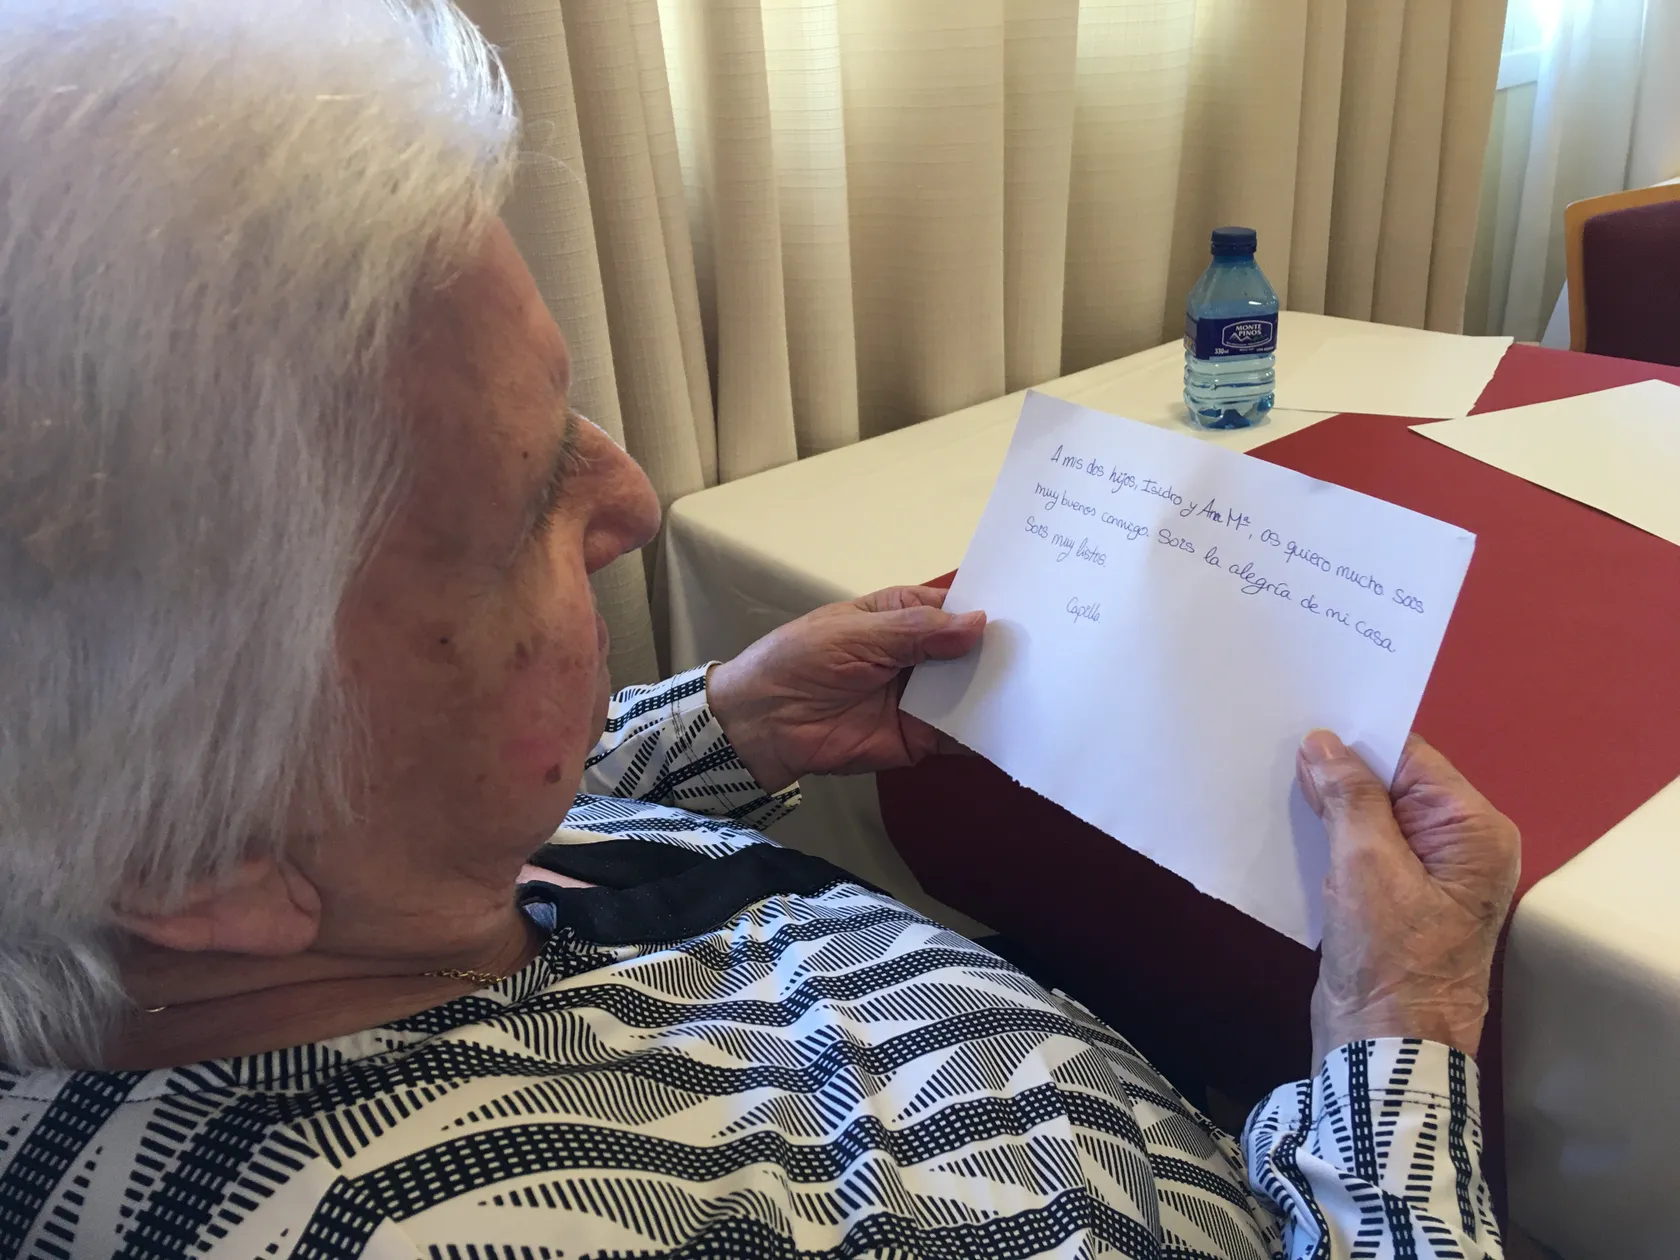 A mis dos hijos, Isidro y Ana Mª, os quiero mucho. Sois
muy buenos conmigo. Sois la alegría de mi casa
Sois muy listos.
Capilla
MONTE
PINOS
330ml